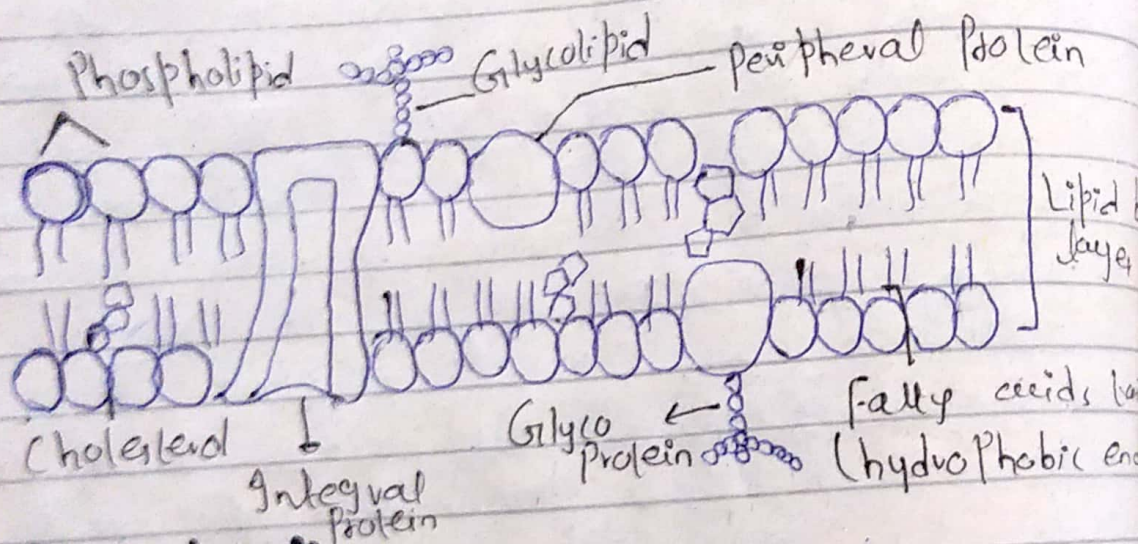 Phospholipid
Glycolipid
Peripheral Protein
Lipid
layer
Cholesterol
Integral
Protein
Glyco
Protein
Fatty acids
(hydrophobic